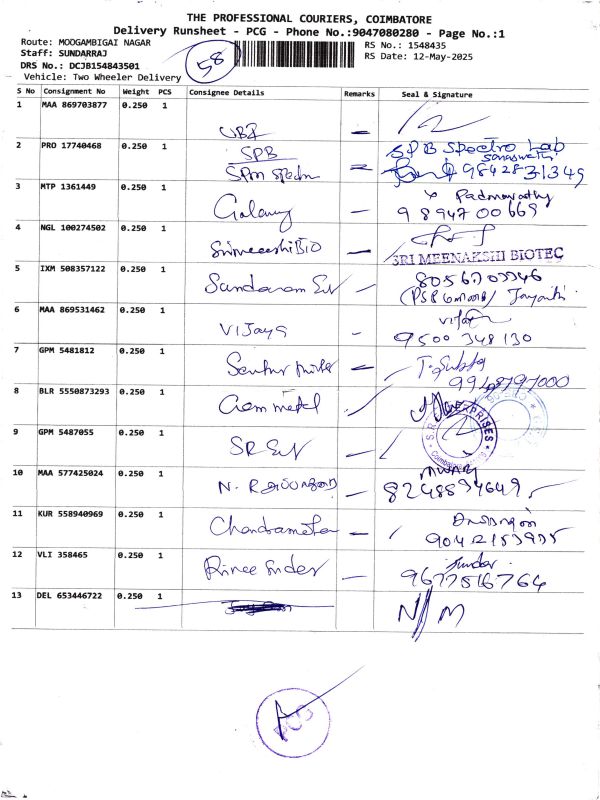 THE PROFESSIONAL COURIERS, COIMBATORE
Delivery Runsheet - PCG - Phone No.:9047080280 - Page No.:1
Route: MOOGAMBIGAI NAGAR
Staff: SUNDARRAJ
DRS No.: DCJB154843501
Vehicle: Two Wheeler Delivery
58
RS No.: 1548435
RS Date: 12-May-2025
S No Consignment No Weight PCS Consignee Details Remarks Seal & Signature
1 MAA 869703877 0.250 1 UBI
2 PRO 17740468 0.250 1 SPB SPB Spectro Lab
Saraswathi
9842831349
3 MTP 1361449 0.250 1 Galaxy Padmavathy
9894700669
4 NGL 100274502 0.250 1 Srimeenashi BIO
SRI MEENAKSHI BIOTEC
5 IXM 508357122 0.250 1 Sundaram
6 MAA 869531462 0.250 1 VIJaya
9500348130
7 GPM 5481812 0.250 1
8 BLR 5550873293 0.250 1 Gem metal
9 GPM 5487055 0.250 1 SR
10 MAA 577425024 0.250 1 N.
11 KUR 558940969 0.250 1
12 VLI 358465 0.250 1
9677516764
13 DEL 653446722 0.250 1 N/M
PCG